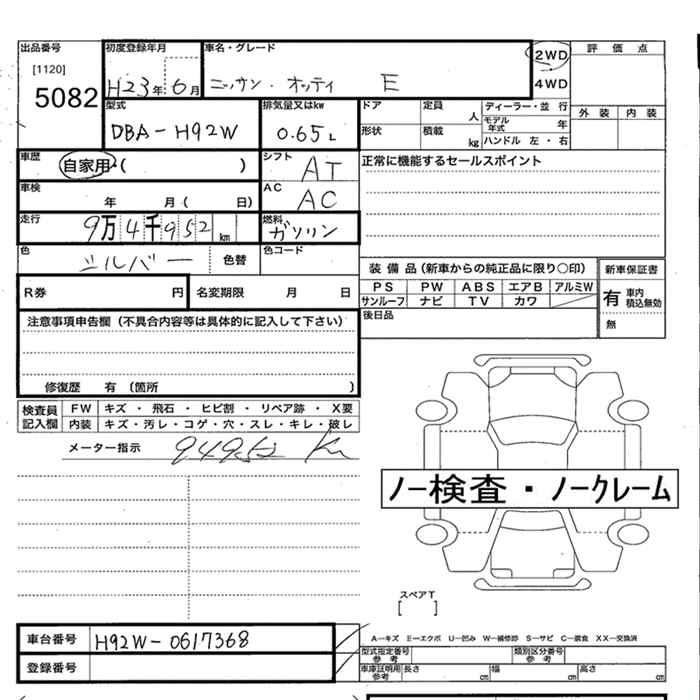 出品番号
[1120]
5082
初度登録年月
H23年6月
車名・グレード
ニッサン・オッティ E
2WD
4WD
評価点
外装 内装
型式
DBA-H92W
排気量又はkw
0.65L
ドア 定員 人
形状 積載 kg
ディーラー・並行
モデル年式 年
ハンドル 左・右
車歴
自家用・( )
シフト
AT
正常に機能するセールスポイント
車検
年 月( 日)
AC
AC
走行
9万4千952km
燃料
ガソリン
色
シルバー
色替
色コード
装備品(新車からの純正品に限り○印)
PS PW ABS エアB アルミW
サンルーフ ナビ TV カワ
新車保証書
有 車内積込無効
無
R券 円
名変期限 月 日
後日品
注意事項申告欄(不具合内容等は具体的に記入して下さい)
修復歴 有 (箇所 )
検査員記入欄
FW キズ・飛石・ヒビ割・リペア跡・X要
内装 キズ・汚レ・コゲ・穴・スレ・キレ・破レ
メーター指示 94952 Km
ノー検査・ノークレーム
スペアT
[ ]
車台番号 H92W-0617368
登録番号
A-キズ E-エクボ U-凹み W-補修跡 S-サビ C-腐食 XX-交換済
型式指定番号 参考
類別区分番号 参考
車庫証明用 参考 長さ cm 幅 cm 高さ cm